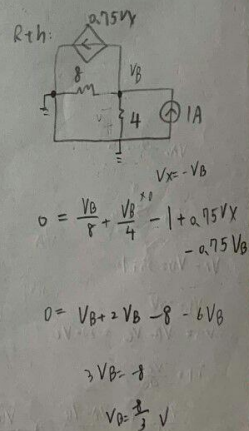 Rth:
0.75Vx
8
VB
4
1A
Vx = -VB
0 = VB/8 + VB/4 - 1 + 0.75Vx
- 0.75VB
0 = VB + 2VB - 8 - 6VB
3VB = -8
VB = 8/3 V